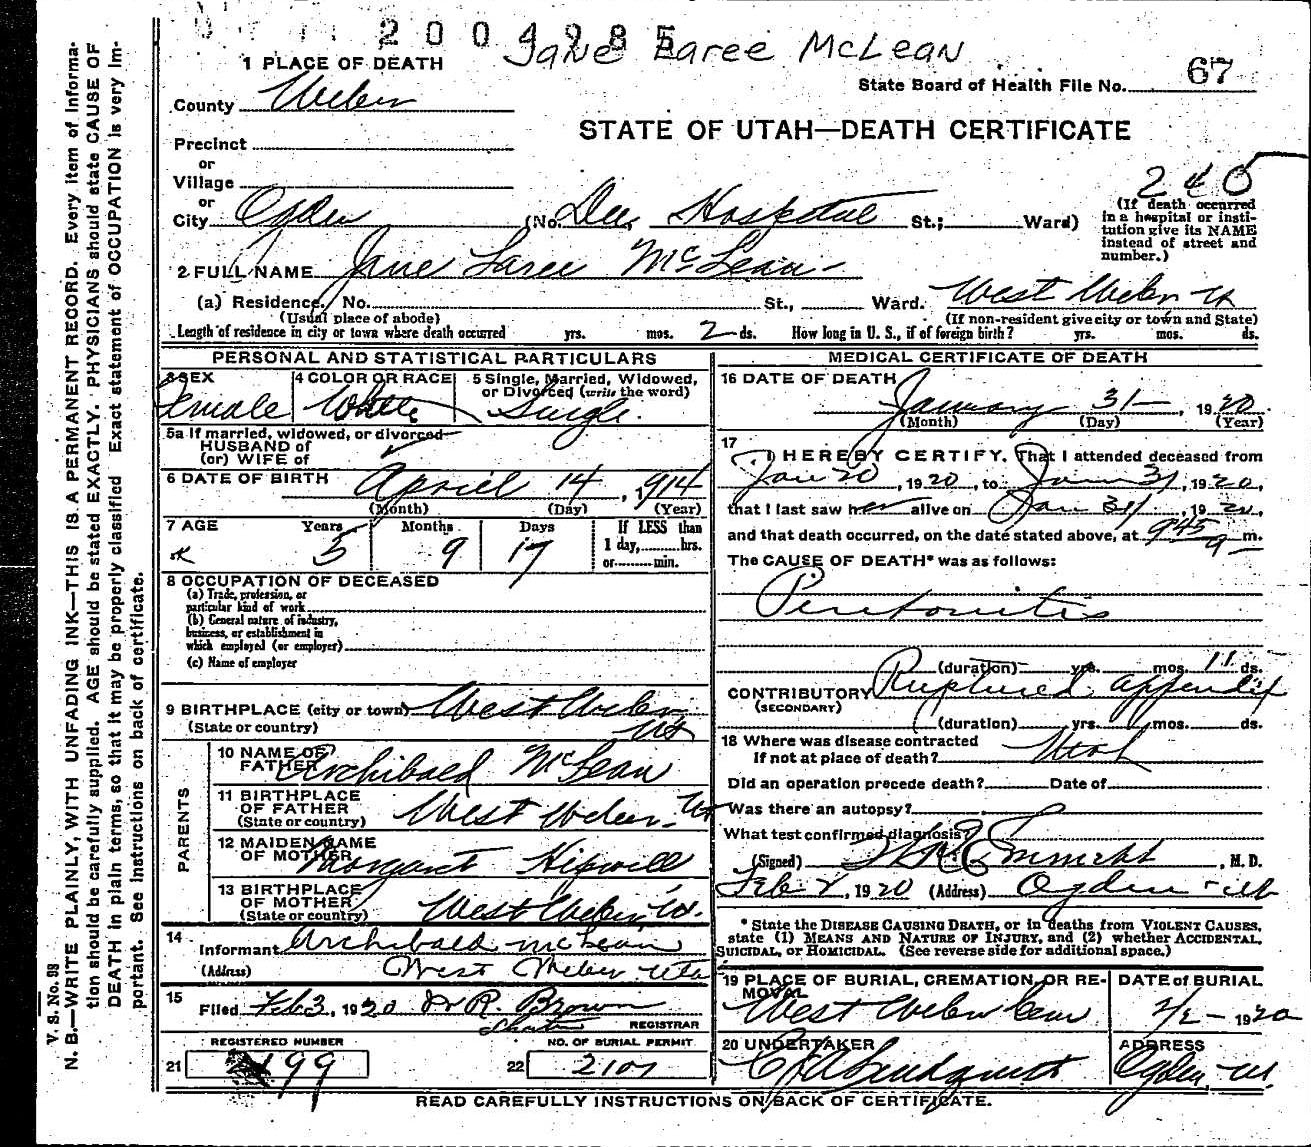 2004985
Jane Laree McLean
1 PLACE OF DEATH
State Board of Health File No. 67
County Weber
STATE OF UTAH—DEATH CERTIFICATE
Precinct
or
Village
240
or
City Ogden (No. Dee, Hospital St.; Ward)
(If death occurred in a hospital or institution give its NAME instead of street and number.)
2 FULL NAME Jane Laree McLean
(a) Residence, No. St., Ward. West Weber Ut
(Usual place of abode) (If non-resident give city or town and State)
Length of residence in city or town where death occurred yrs. mos. 2 ds. How long in U. S., if of foreign birth? yrs. mos. ds.
PERSONAL AND STATISTICAL PARTICULARS
3 SEX Female
4 COLOR OR RACE White
5 Single, Married, Widowed, or Divorced (write the word) Single.
5a If married, widowed, or divorced
HUSBAND of
(or) WIFE of
6 DATE OF BIRTH April 14, 1914
(Month) (Day) (Year)
7 AGE Years 5 Months 9 Days 17
If LESS than 1 day, hrs. or min.
8 OCCUPATION OF DECEASED
(a) Trade, profession, or particular kind of work
(b) General nature of industry, business, or establishment in which employed (or employer)
(c) Name of employer
9 BIRTHPLACE (city or town) West Weber
(State or country) Ut
PARENTS
10 NAME OF FATHER Archibald McLean
11 BIRTHPLACE OF FATHER (State or country) West Weber, Ut
12 MAIDEN NAME OF MOTHER Margaret Hipwell
13 BIRTHPLACE OF MOTHER (State or country) West Weber, Ut.
14 Informant Archibald McLean
(Address) West Weber Uta
15 Filed Feb 3, 1920 R. Brown
REGISTRAR
REGISTERED NUMBER
21 99
NO. OF BURIAL PERMIT
22 2107
MEDICAL CERTIFICATE OF DEATH
16 DATE OF DEATH
January 31—, 1920
(Month) (Day) (Year)
17 I HEREBY CERTIFY, That I attended deceased from
Jan 20, 1920, to Jan 31, 1920,
that I last saw her alive on Jan 31, 1920,
and that death occurred, on the date stated above, at 9 45 m.
The CAUSE OF DEATH* was as follows:
Peritonitis
(duration) yrs. mos. 11 ds.
CONTRIBUTORY Ruptured appendix
(SECONDARY)
(duration) yrs. mos. ds.
18 Where was disease contracted
If not at place of death? Utah
Did an operation precede death? Date of
Was there an autopsy?
What test confirmed diagnosis?
(Signed) Emmett, M. D.
Feb 2, 1920 (Address) Ogden Utah
*State the DISEASE CAUSING DEATH, or in deaths from VIOLENT CAUSES,
state (1) MEANS AND NATURE OF INJURY, and (2) whether ACCIDENTAL,
SUICIDAL, or HOMICIDAL. (See reverse side for additional space.)
19 PLACE OF BURIAL, CREMATION, OR REMOVAL
West Weber Cem
DATE of BURIAL
2/2— 1920
20 UNDERTAKER
Lindquist
ADDRESS
Ogden, Ut.
READ CAREFULLY INSTRUCTIONS ON BACK OF CERTIFICATE.
V. S. No. 98
N. B.—WRITE PLAINLY, WITH UNFADING INK—THIS IS A PERMANENT RECORD. Every item of informa-
tion should be carefully supplied. AGE should be stated EXACTLY. PHYSICIANS should state CAUSE OF
DEATH in plain terms, so that it may be properly classified. Exact statement of OCCUPATION is very im-
portant. See instructions on back of certificate.